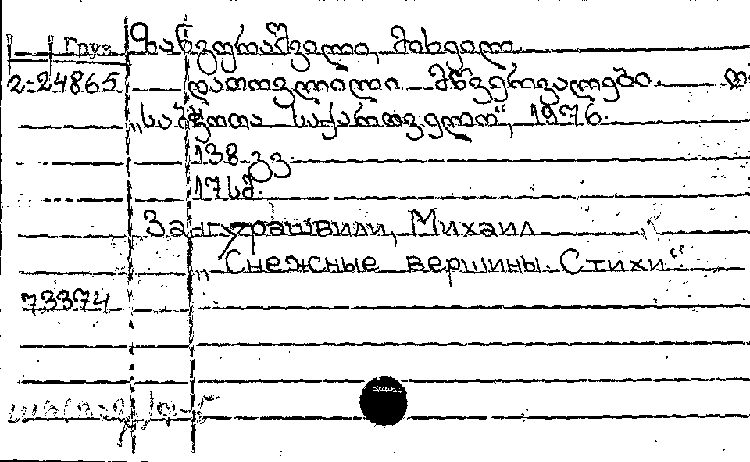 Груз ზანგურაშვილი, მიხეილ
2-24865 დათოვლილი მწვერვალები. თ
„საბჭოთა საქართველო“, 1976.
138 გვ.
17 სმ.
Зангурашвили, Михаил
„Снежные вершины. Стихи“
73374